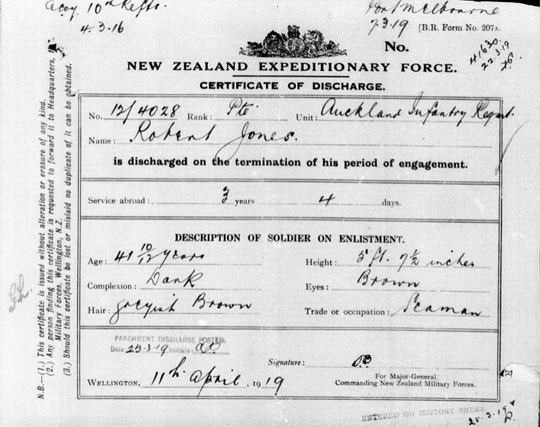 A Coy. 10th Refts.
4.3.16
Port Melbourne
7.3.19
[B.R. Form No. 207A.
No.
41630
22.3.19
NEW ZEALAND EXPEDITIONARY FORCE.
CERTIFICATE OF DISCHARGE.
No. 12/4028 Rank: Pte Unit: Auckland Infantry Regmt.
Name: Robert Jones.
is discharged on the termination of his period of engagement.
Service abroad: 3 years 4 days.
DESCRIPTION OF SOLDIER ON ENLISTMENT.
Age: 41 10/12 years Height: 5 ft. 7½ inches
Complexion: Dark Eyes: Brown
Hair: Greyish Brown Trade or occupation: Seaman
PARCHMENT DISCHARGE POSTED.
Date 25.3.19 Initials
Signature:
WELLINGTON, 11th April 1919
For Major-General,
Commanding New Zealand Military Forces.
ENTERED ON HISTORY SHEET
25.3.19
N.B.—(1.) This certificate is issued without alteration or erasure of any kind.
(2.) Any person finding this certificate is requested to forward it to Headquarters,
Military Forces, Wellington, N.Z.
(3.) Should this certificate be lost or mislaid no duplicate of it can be obtained.